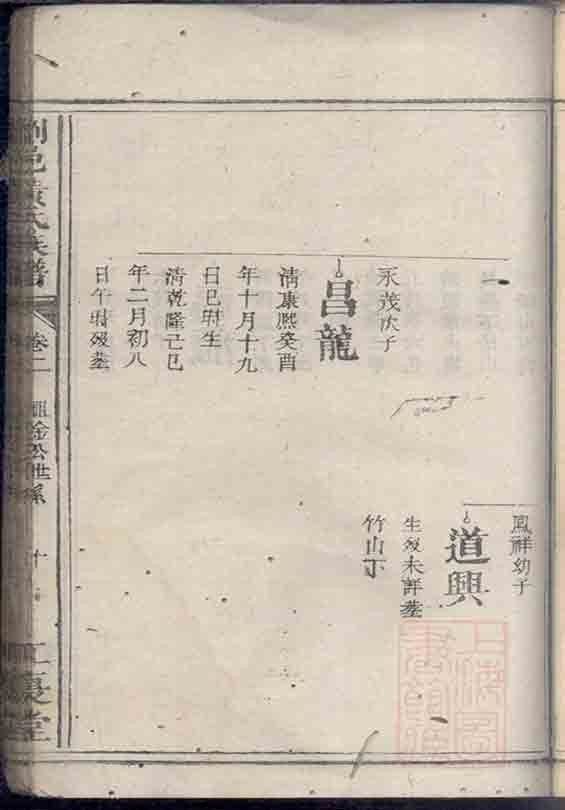 永茂次子
昌龍
清康熙癸酉
年十月十九
日巳时生
清乾隆己巳
年二月初八
日午时殁塟
鳳祥幼子
道興
生殁未詳塟
竹山下
瀏邑黄氏族譜
卷二
公世系
十
江夏堂
上海圖書館藏